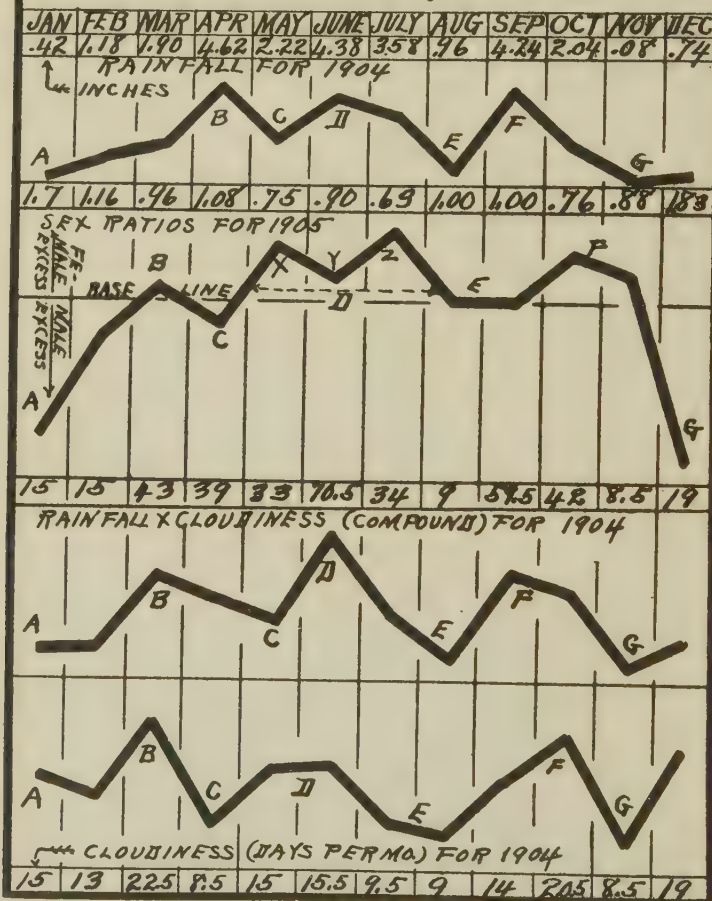 JAN FEB MAR APR MAY JUNE JULY AUG SEP OCT NOV DEC
.42 1.18 1.90 4.62 2.22 4.38 3.58 .96 4.24 2.04 .08 .74
RAINFALL FOR 1904
INCHES
A B C D E F G
1.7 1.16 .96 1.08 .75 .90 .69 1.00 1.00 .76 .88 1.83
SEX RATIOS FOR 1905
FE-
MALE MALE
EXCESS EXCESS
BASE LINE
A B C X Y Z D E F G
15 15 43 39 33 70.5 34 9 59.5 42 8.5 19
RAINFALL X CLOUDINESS (COMPOUND) FOR 1904
A B C D E F G
A B C D E F G
CLOUDINESS (DAYS PER MO.) FOR 1904
15 13 22.5 8.5 15 15.5 9.5 9 14 20.5 8.5 19